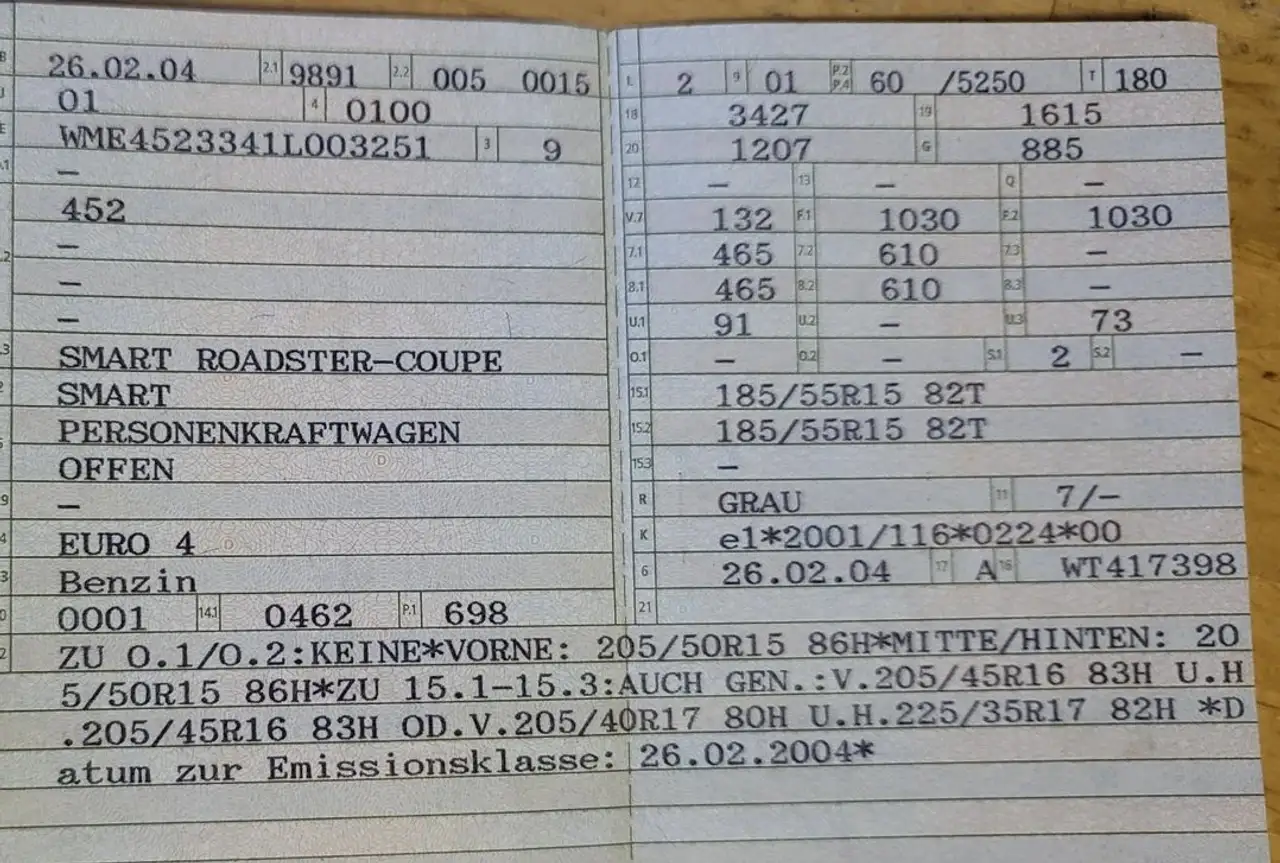 B 26.02.04 2.1 9891 2.2 005 0015
J 01 4 0100
E WME4523341L003251 3 9
.1 –
452
.2 –
–
–
.3 SMART ROADSTER-COUPE
2 SMART
PERSONENKRAFTWAGEN
5 OFFEN
9 –
4 EURO 4
3 Benzin
0 0001 14.1 0462 P.1 698
L 2 9 01 P.2 P.4 60 /5250 T 180
18 3427 19 1615
20 1207 G 885
12 – 13 – Q –
V.7 132 F.1 1030 F.2 1030
7.1 465 7.2 610 7.3 –
8.1 465 8.2 610 8.3 –
U.1 91 U.2 – U.3 73
O.1 – O.2 – S.1 2 S.2 –
15.1 185/55R15 82T
15.2 185/55R15 82T
15.3 –
R GRAU 11 7/–
K e1*2001/116*0224*00
6 26.02.04 17 A 16 WT417398
21
2 ZU O.1/O.2:KEINE*VORNE: 205/50R15 86H*MITTE/HINTEN: 20
5/50R15 86H*ZU 15.1-15.3:AUCH GEN.:V.205/45R16 83H U.H
.205/45R16 83H OD.V.205/40R17 80H U.H.225/35R17 82H *D
atum zur Emissionsklasse: 26.02.2004*